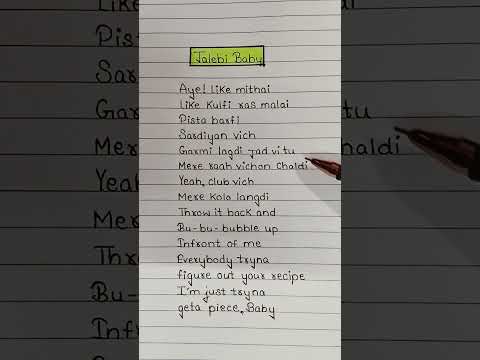 Jalebi Baby
Aye! Like mithai
Like Kulfi ras malai
Pista barfi
Sardiyan vich
Garmi lagdi jad vi tu
Mere raah vichon Chaldi
Yeah, club vich
Mere Kola langdi
Throw it back and
Bu-bu-bubble up
Infront of me
Everybody tryna
figure out your recipe
I'm just tryna
geta piece, Baby